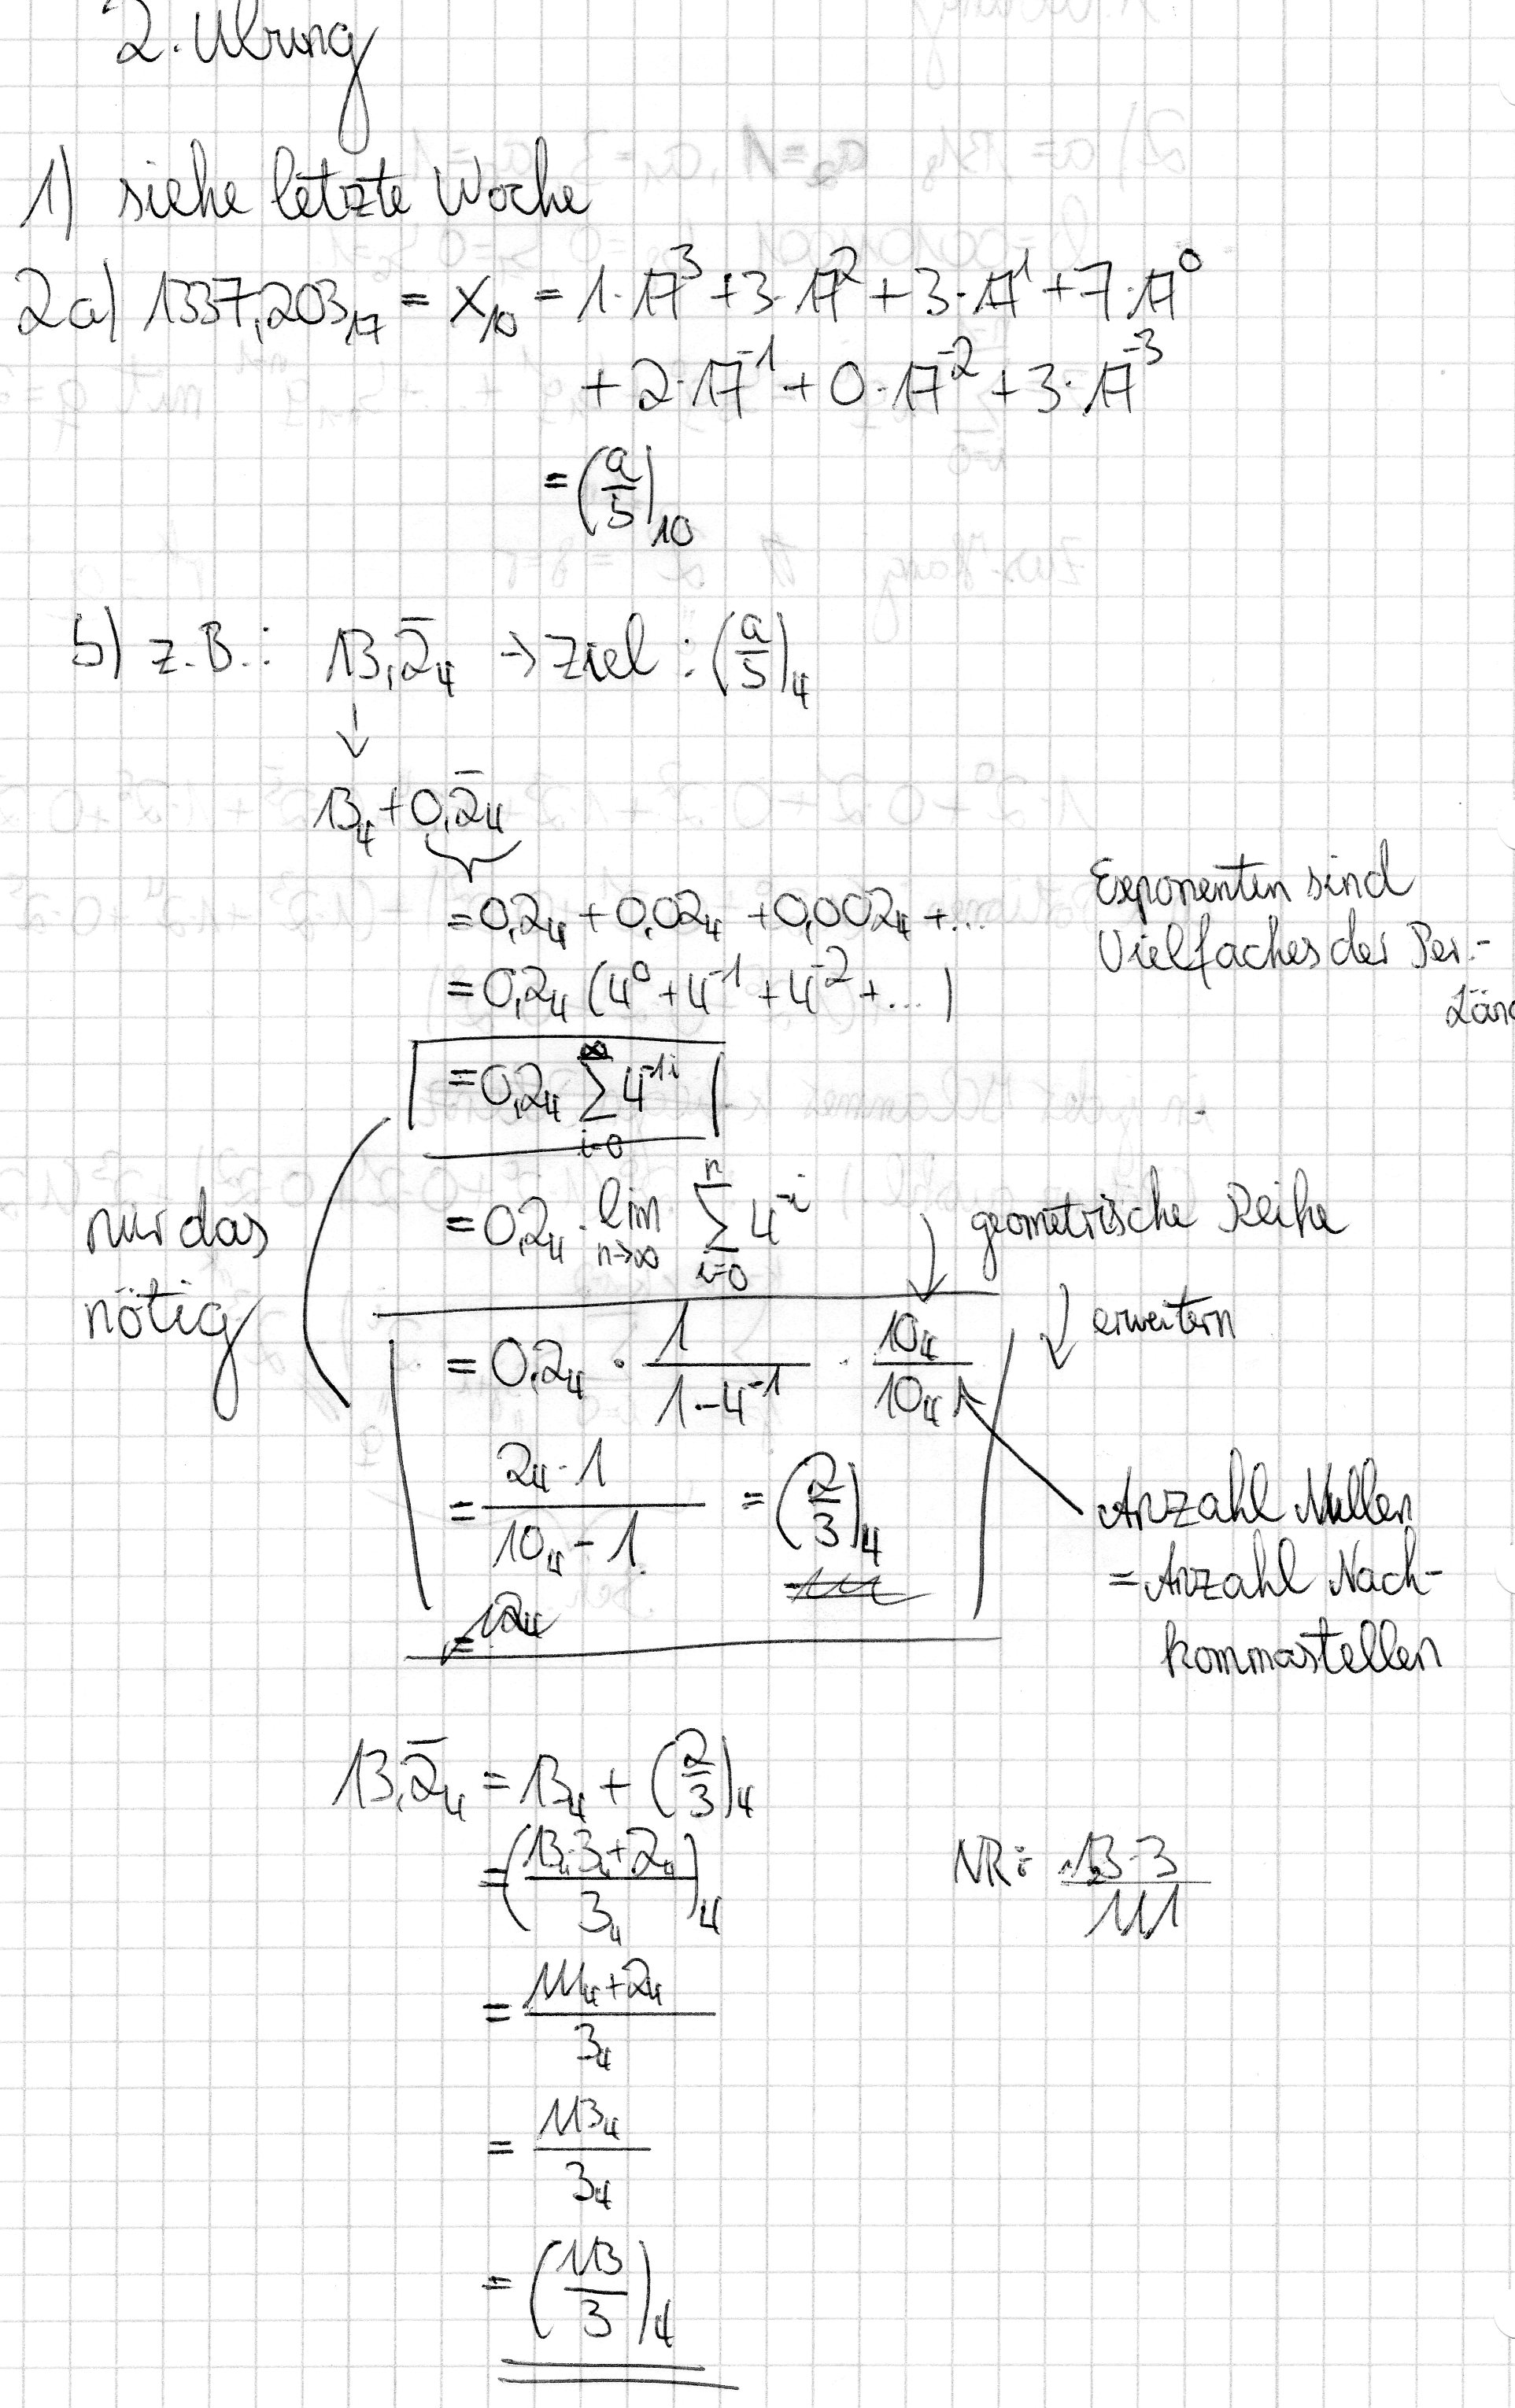 2. Übung
1) siehe letzte Woche
2a) 1337,203₁₇ = x₁₀ = 1·17³ + 3·17² + 3·17¹ + 7·17⁰
+ 2·17⁻¹ + 0·17⁻² + 3·17⁻³
= (a/b)₁₀
b) z.B.: 13,2̅₄ → Ziel : (a/b)₄
↓
13₄ + 0,2̅₄
= 0,2₄ + 0,02₄ + 0,002₄ + ...
= 0,2₄ (4⁰ + 4⁻¹ + 4⁻² + ... )
Exponenten sind
Vielfaches der Per.-
= 0,2₄ ∑_{i=0}^{∞} 4^{-1i}
= 0,2₄ · lim_{n→∞} ∑_{i=0}^{n} 4^{-i}
geometrische Reihe
nur das
nötig
= 0,2₄ · 1/(1-4⁻¹) · 10₄/10₄
erweitern
= (2₄·1)/(10₄-1) = (2/3)₄
Anzahl Nullen
= Anzahl Nach-
kommastellen
13,2̅₄ = 13₄ + (2/3)₄
= ((13₄·3₄+2₄)/3₄)₄
NR: 13·3
111
= (111₄+2₄)/3₄
= 113₄/3₄
= (113/3)₄